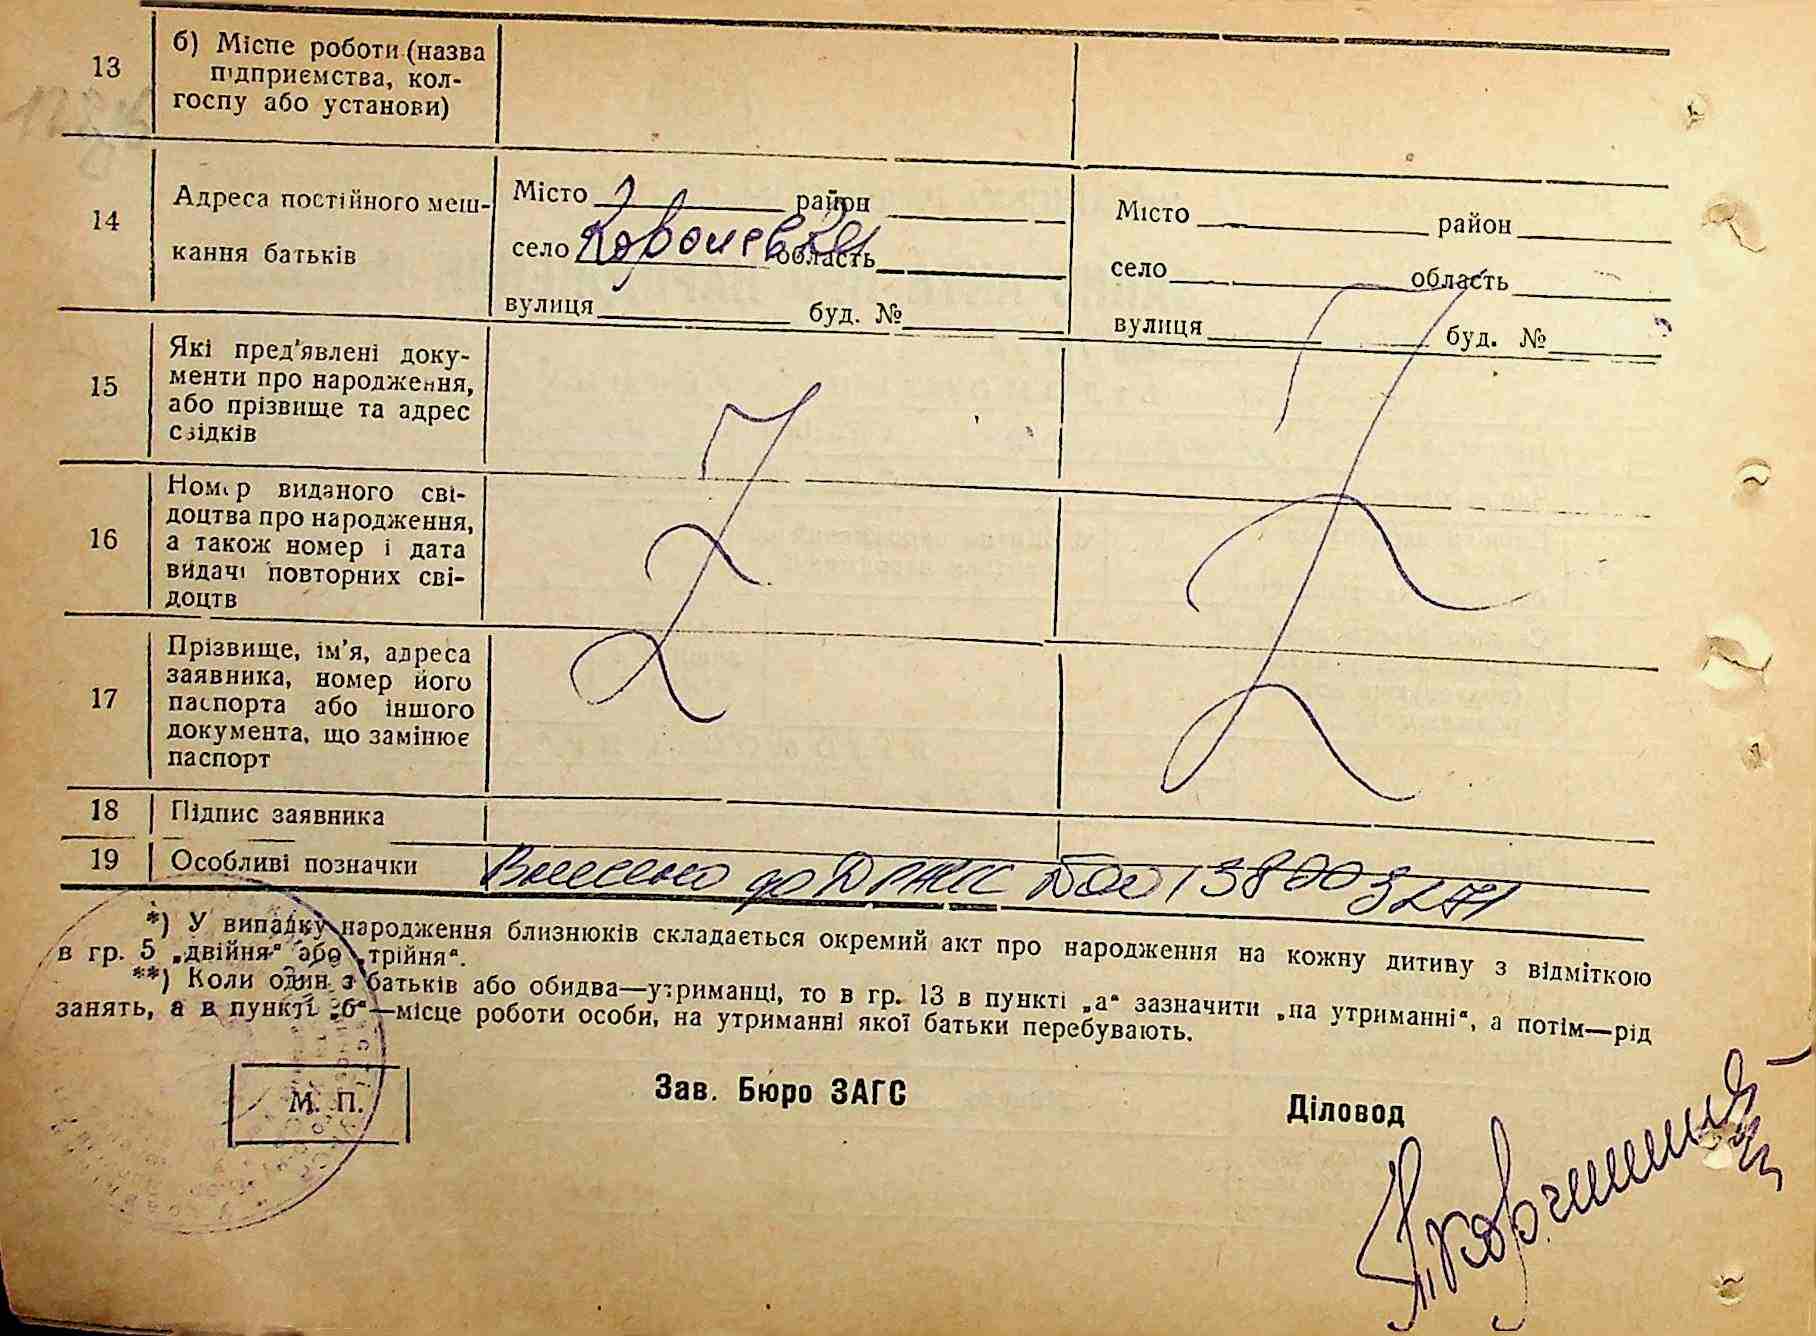 13 б) Місце роботи (назва
підприємства, кол-
госпу або установи)
14 Адреса постійного меш-
кання батьків
Місто район
село Королевка область
вулиця буд. №
Місто район
село область
вулиця буд. №
15 Які пред'явлені доку-
менти про народження,
або прізвище та адрес
свідків
16 Номер виданого сві-
доцтва про народження,
а також номер і дата
видачі повторних сві-
доцтв
Z
Z
17 Прізвище, ім'я, адреса
заявника, номер його
паспорта або іншого
документа, що замінює
паспорт
18 Підпис заявника
19 Особливі позначки Внесено до ДРАЦС
*) У випадку народження близнюків складається окремий акт про народження на кожну дитину з відміткою
в гр. 5 „двійня“ або „трійня“.
**) Коли один з батьків або обидва—утриманці, то в гр. 13 в пункті „а“ зазначити „на утриманні“, а потім—рід
занять, а в пункті „б“—місце роботи особи, на утриманні якої батьки перебувають.
М. П.
Зав. Бюро ЗАГС
Діловод